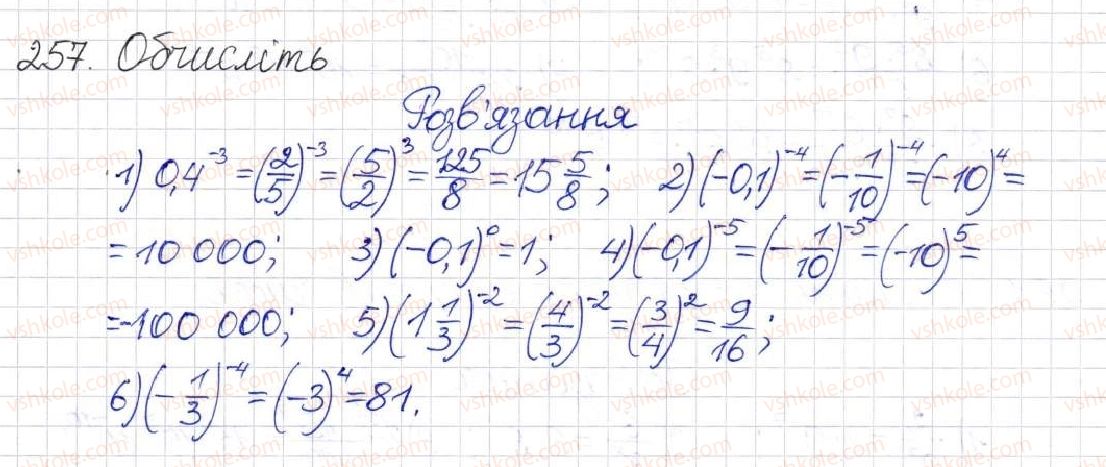 257. Обчисліть
Розв'язання
1) 0,4⁻³ = (2/5)⁻³ = (5/2)³ = 125/8 = 15 5/8; 2) (-0,1)⁻⁴ = (-1/10)⁻⁴ = (-10)⁴ =
= 10 000; 3) (-0,1)⁰ = 1; 4) (-0,1)⁻⁵ = (-1/10)⁻⁵ = (-10)⁵ =
= -100 000; 5) (1 1/3)⁻² = (4/3)⁻² = (3/4)² = 9/16;
6) (-1/3)⁻⁴ = (-3)⁴ = 81.
vshkole.com